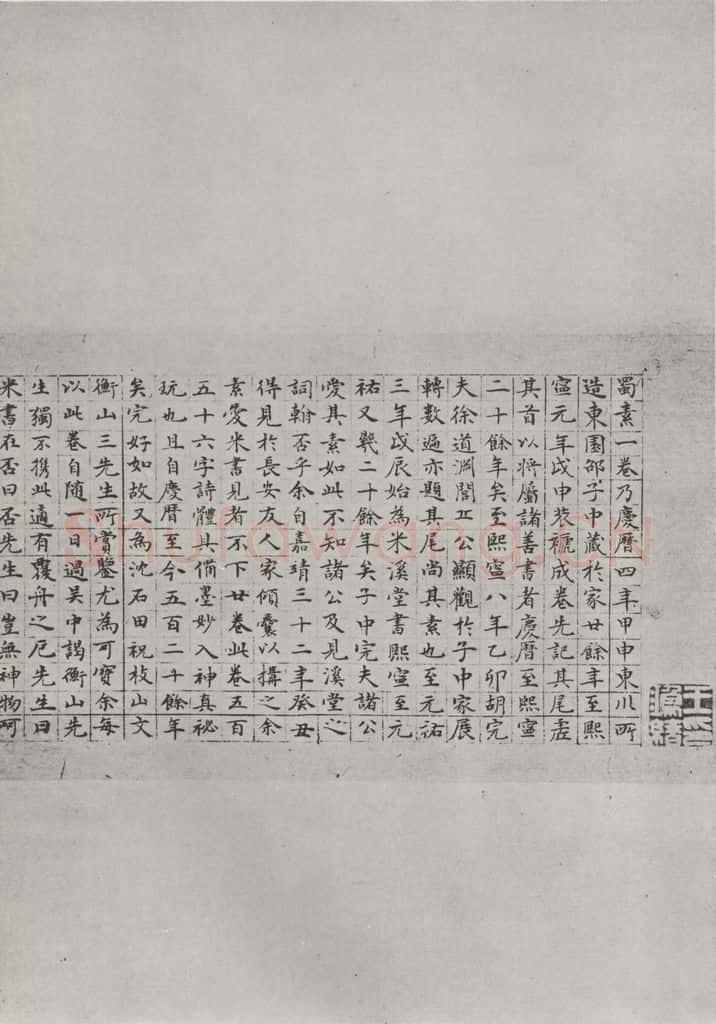 蜀素一卷乃慶曆四年甲申東川所
造東園邵子中藏於家廿餘年至熙
寧元年戊申裝褫成卷先記其尾虛
其首以將屬諸善書者慶曆至熙寧
二十餘年矣至熙寧八年乙卯胡完
夫徐道淵閭丘公顯觀於子中家展
轉數過亦題其尾尚其素也至元祐
三年戊辰始為米溪堂書熙寧至元
祐又幾二十餘年矣子中完夫諸公
愛其素如此不知諸公及見溪堂之
詞翰否乎余自嘉靖三十二年癸丑
得見於長安友人家傾囊以搆之余
素愛米書見者不下廿卷此卷五百
五十六字詩體具備墨妙入神真祕
玩也且自慶曆至今五百二十餘年
矣完好如故又為沈石田祝枝山文
衡山三先生所賞鑒尤為可寶余每
以此卷自随一日過吳中謁衡山先
生獨不攜此適有覆舟之厄先生曰
米書在否曰否先生曰豈無神物呵
shufawang.cn